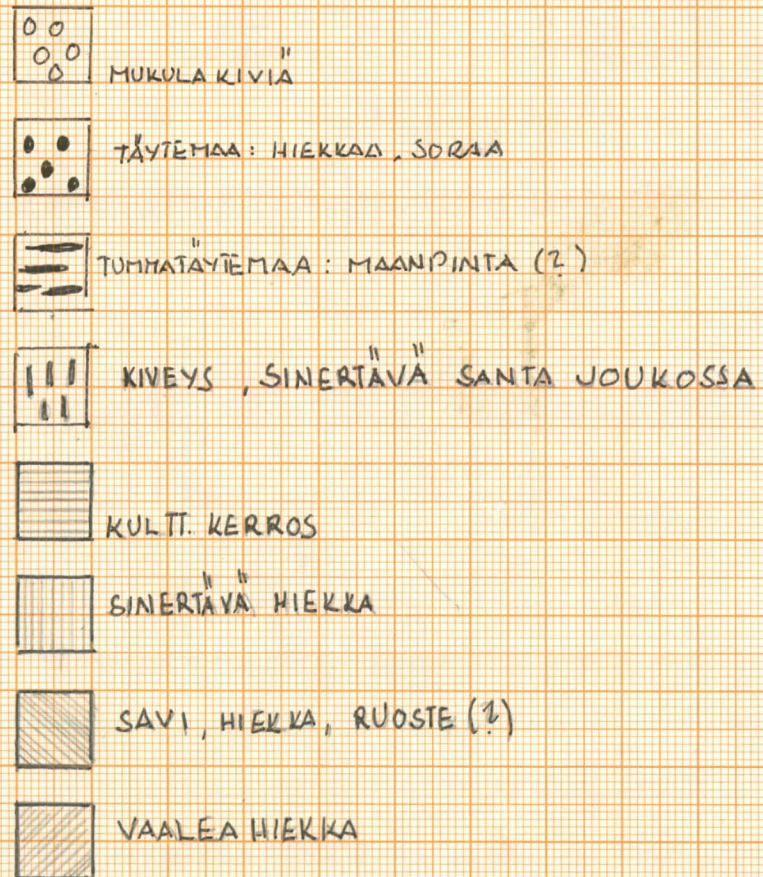 MUKULAKIVIÄ
TÄYTEMAA: HIEKKAA, SORAA
TUMMATÄYTEMAA: MAANPINTA (?)
KIVEYS, SINERTÄVÄ SANTA JOUKOSSA
KULTT. KERROS
SINERTÄVÄ HIEKKA
SAVI, HIEKKA, RUOSTE (?)
VAALEA HIEKKA